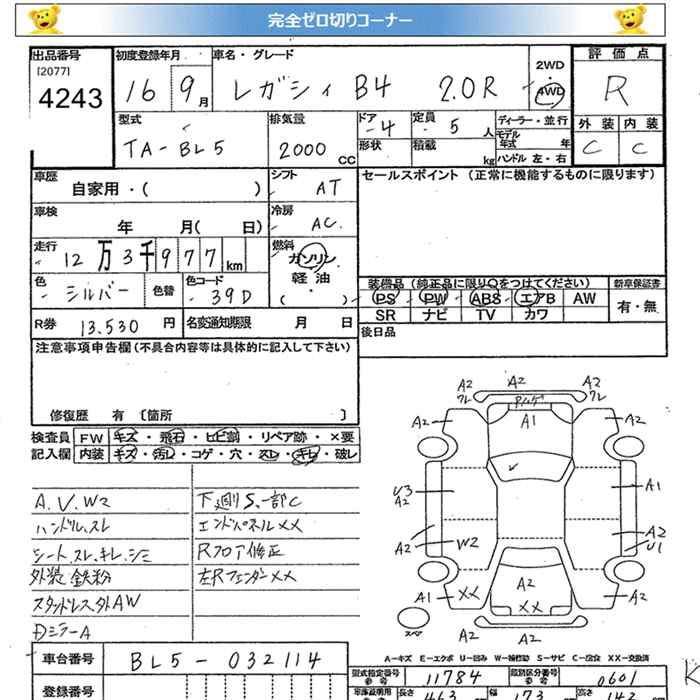 完全ゼロ切りコーナー
出品番号 初度登録年月 車名・グレード 2WD 評価点
[2077]
4243 16 9月 レガシィ B4 2.0R 4WD R
型式 排気量 ドア 定員 ディーラー・並行 外装 内装
TA-BL5 2000 CC 4 5人 モデル年式 年 C C
形状 積載 kg ハンドル 左・右
車歴 自家用・( ) シフト AT セールスポイント (正常に機能するものに限ります)
車検 年 月( 日) 冷房 AC
走行 12万3千977km 燃料 ガソリン
軽油
( )
色 シルバー 色替 色コード 39D
装備品 (純正品に限りOをつけてください) 新車保証書
PS PW ABS エアB AW 有・無
SR ナビ TV カワ
R券 13.530円 名変通知期限 月 日 後日品
注意事項申告欄 (不具合内容等は具体的に記入して下さい)
修復歴 有 〔箇所 〕
検査員 FW キズ・飛石・ヒビ割・リペア跡・×要
記入欄 内装 キズ・汚レ・コゲ・穴・スレ・キレ・破レ
A.V.W2
ハンドル.スレ
シート.スレ.キレ.シミ
外装 鉄粉
スタッドレス.外AW
Dミラー A
下廻りS.一部C
エンドパネルXX
Rフロア修正
左RフェンダーXX
A2 A2 A2
クレ クレ
A2 A1 A2
U3 A2 A1
A2 W2 A2 U1
A1 XX A2 XX A2
A2 A2
スペア
A-キズ E-エクボ U-凹み W-補修跡 S-サビ C-腐食 XX-交換済
車台番号 BL5-032114
型式指定番号 11784 類別区分番号 0601
登録番号
長さ 463 幅 173 高さ 142